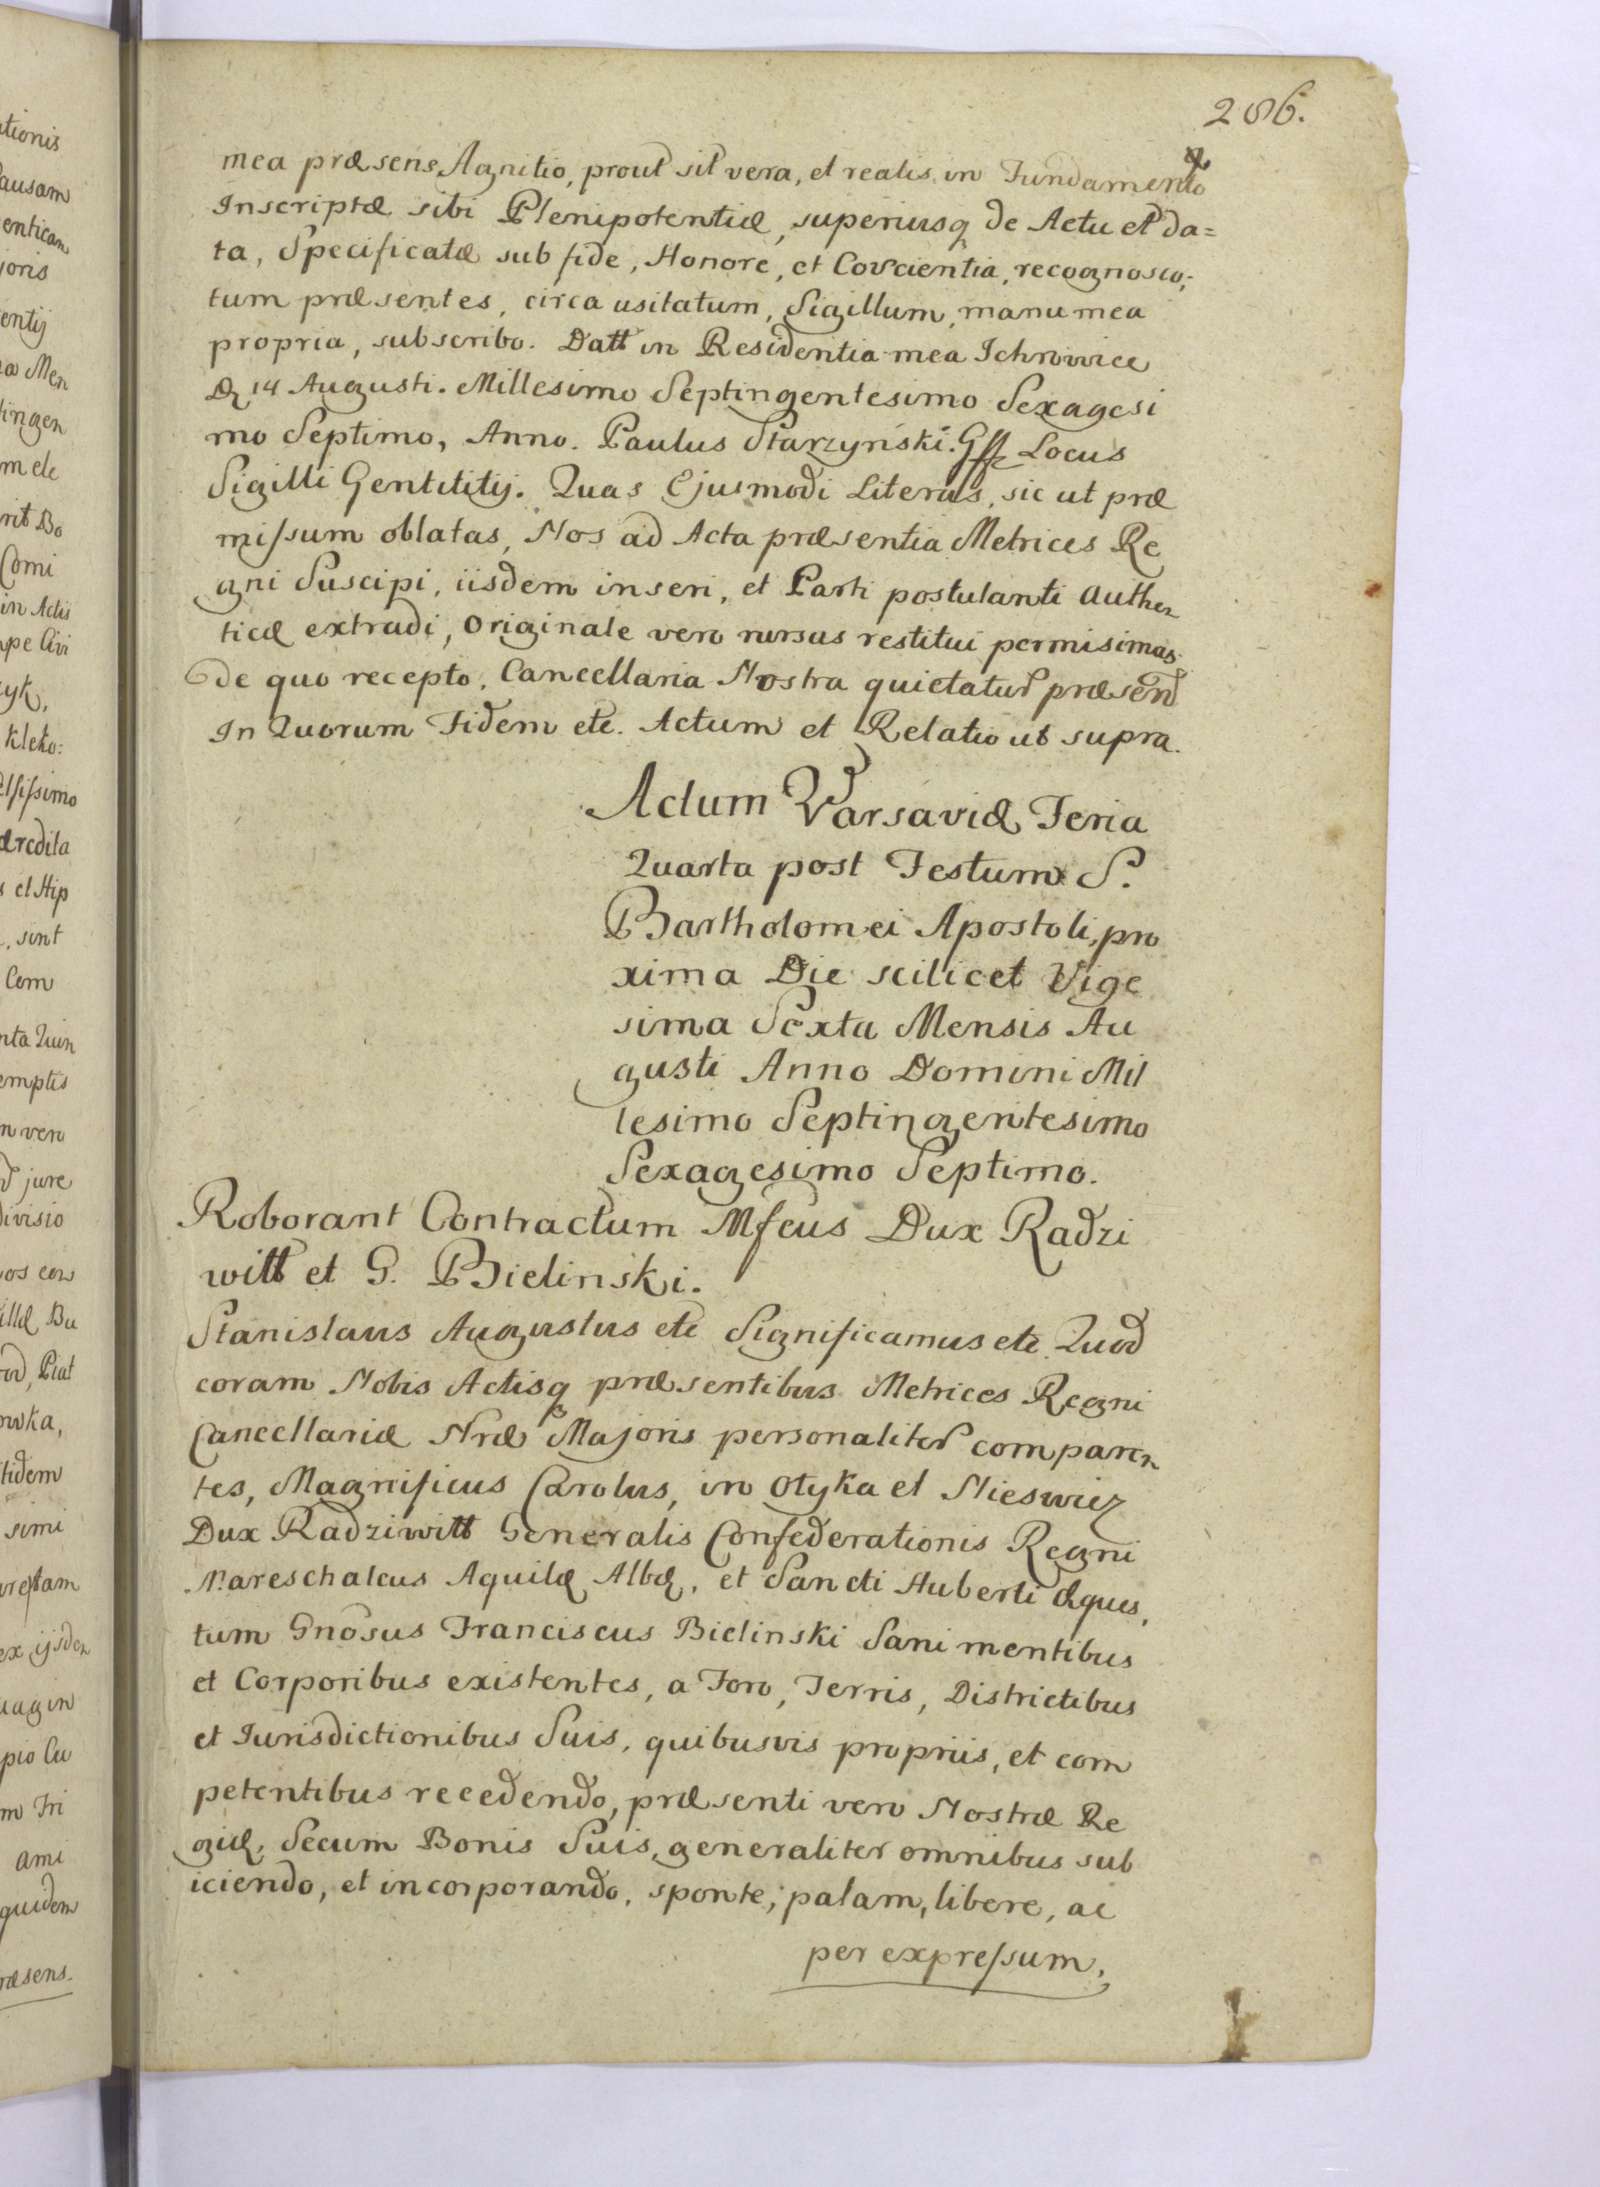 206.
mea præsens Agnitio, prout sit vera, et realis in Fundamento
Inscriptæ sibi Plenipotentiæ, superiusq de Actu et da=
ta, Specificatæ sub fide, Honore, et Coscientia, recognosco,
tum præsentes, circa usitatum, Sigillum, manu mea
propria, subscribo. Datt in Residentia mea
14 Augusti. Millesimo Septingentesimo Sexagesi
mo Septimo, Anno. Paulus Starzyński. Locus
Sigilli Gentilitij. Quas Ejusmodi Literas, sic ut præ
missum oblatas, Nos ad Acta præsentia Metrices Re
gni Suscipi, iisdem inseri, et Parti postulanti Authen
ticæ extradi, Originale vero rursus restitui permisimus.
de quo recepto, Cancellaria Nostra quietatur præsen
In Quorum Fidem etc. Actum et Relatio ut supra.
Actum Varsaviæ Feria
Quarta post Festum S.
Bartholomei Apostoli, pro
xima Die scilicet Vige
sima Sexta Mensis Au
gusti Anno Domini Mil
lesimo Septingentesimo
Sexagesimo Septimo.
Roborant Contractum Mfcus Dux Radzi
witt et G. Bielinski.
Stanislaus Augustus etc Significamus etc. Quod
coram Nobis Actisq præsentibus Metrices Regni
Cancellariæ Nræ Majoris personaliter comparen
tes, Magnificus Carolus, in Olyka et Nieswiez
Dux Radziwitt Generalis Confederationis Regni
Mareschalcus Aquilæ Albæ, et Sancti Huberti Æques,
tum Gnosus Franciscus Bielinski Sani mentibus
et Corporibus existentes, a Foro, Terris, Districtibus
et Jurisdictionibus Suis, quibusvis propriis, et com
petentibus recedendo, præsenti vero Nostræ Re
giæ, Secum Bonis Suis, generaliter omnibus sub
iciendo, et incorporando, sponte, palam, libere, ac
per expressum,
ationis
ausam
entican
joris
entij
Men
tingen
m ele
rit Bo
Comi
in Actis
pe Civi
zyk,
Kleko:
elsissimo
æredita
s et Hip
, sint
Cem
nta Quin
emptis
n vero
jure
divisio
os con
illæ Bu
od, Piat
owka,
tidem
simi
ex, ijsden
uagin
pio Cu
m Tri
ami
quidem
ræsens.